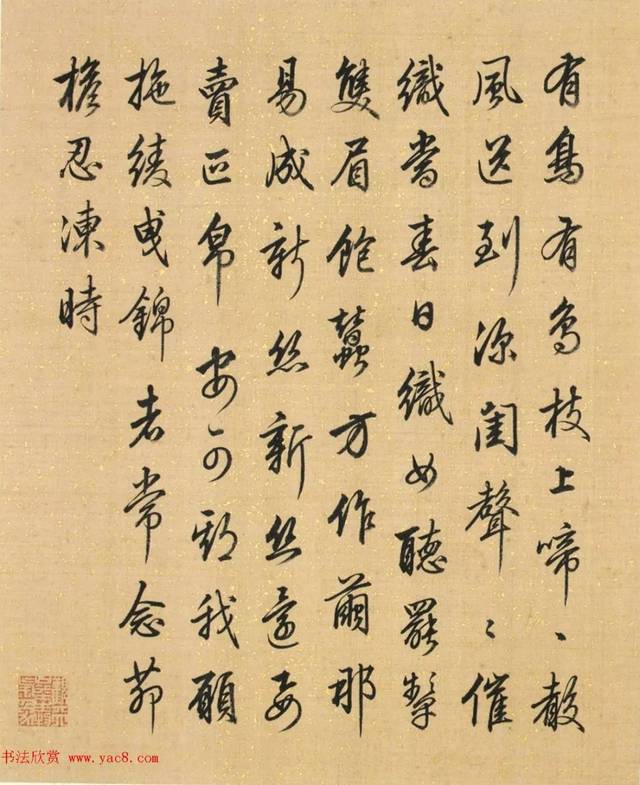 有鳥有鳥枝上啼、散
風送到深閨聲、催
織當春日織女聽罷顰
雙眉飽蠶方作繭那
易成新絲新絲還要
賣匹帛安可我願
拖綾曳錦者常念茆
檐忍凍時
书法欣赏 www.yac8.com